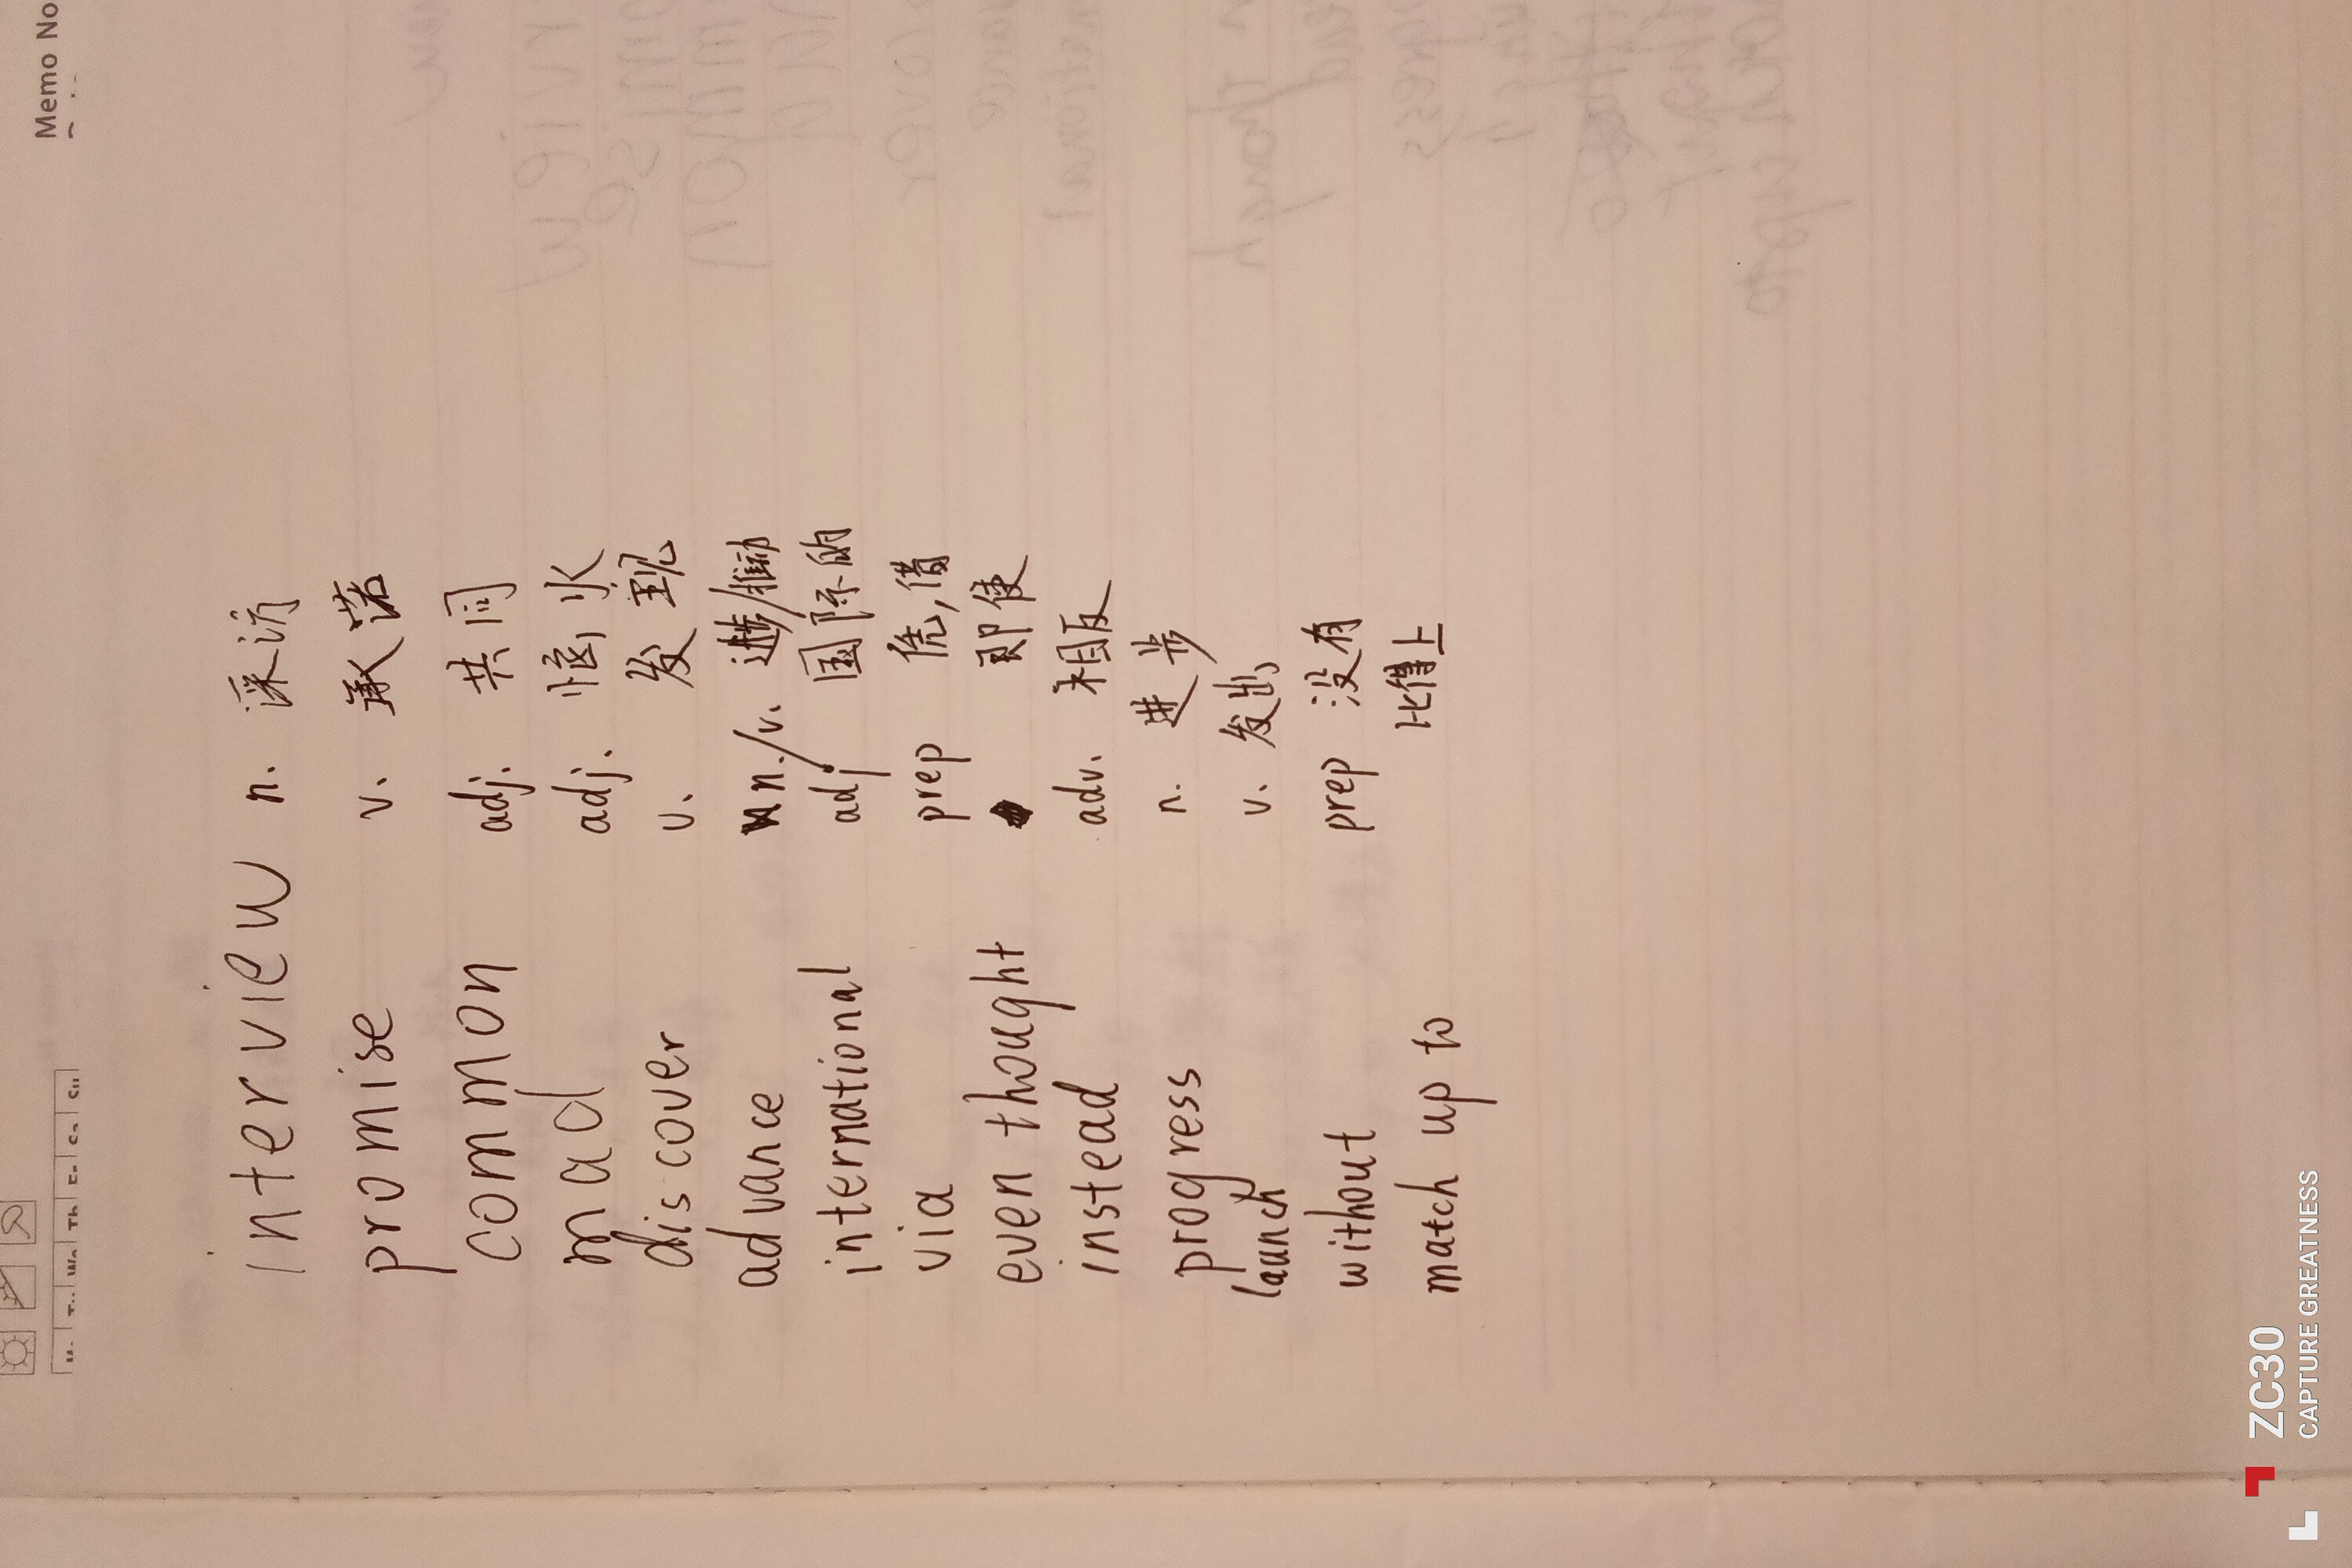 Memo No
interview n. 采访
promise v. 承诺
common adj. 共同
mad adj. 恼火
discover v. 发现
advance n./v. 进步/推动
international adj 国际的
via prep 凭,借
even thought 即使
instead adv. 相反
progress n. 进步
launch v. 发出
without prep 没有
match up to 比得上
ZC30
CAPTURE GREATNESS